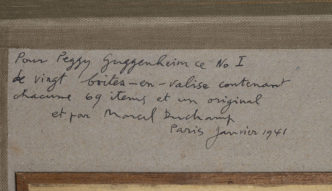 Pour Peggy Guggenheim ce No I
de vingt boîtes-en-valise contenant
chacune 69 items et un original
et par Marcel Duchamp
Paris Janvier 1941